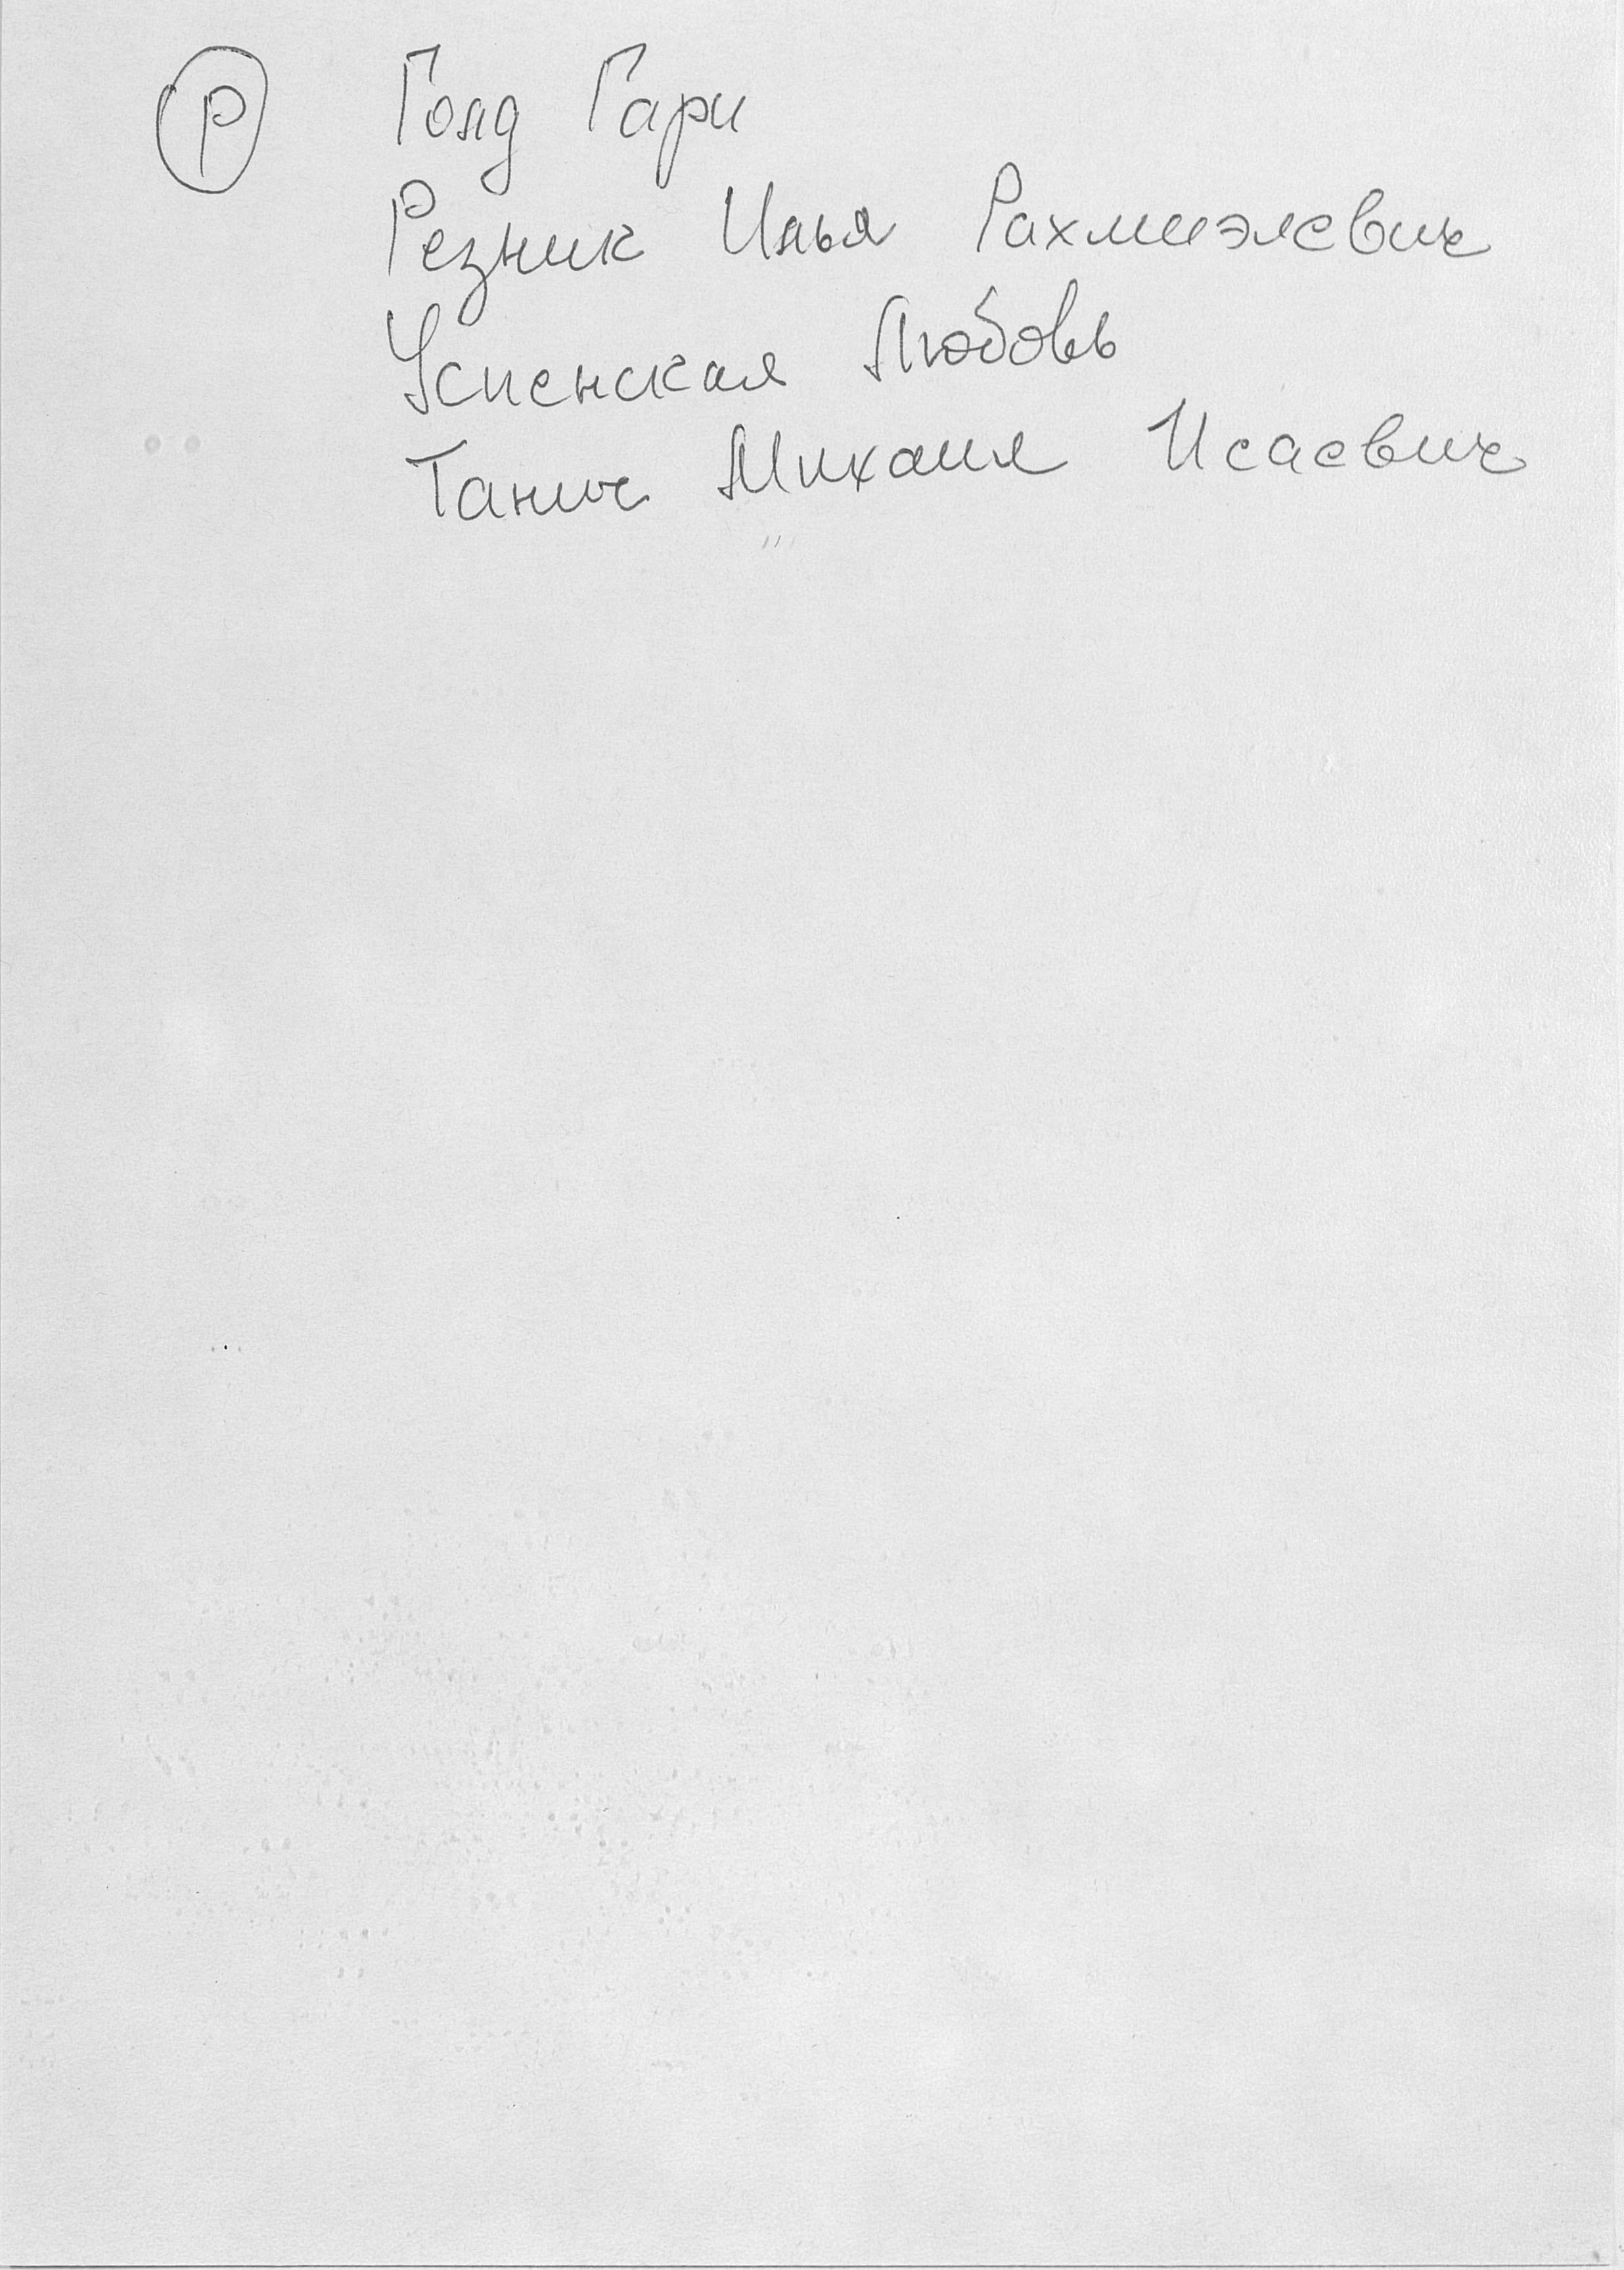 Р Голд Гари
Резник Илья Рахмиэлевич
Успенская Любовь
Танич Михаил Исаевич